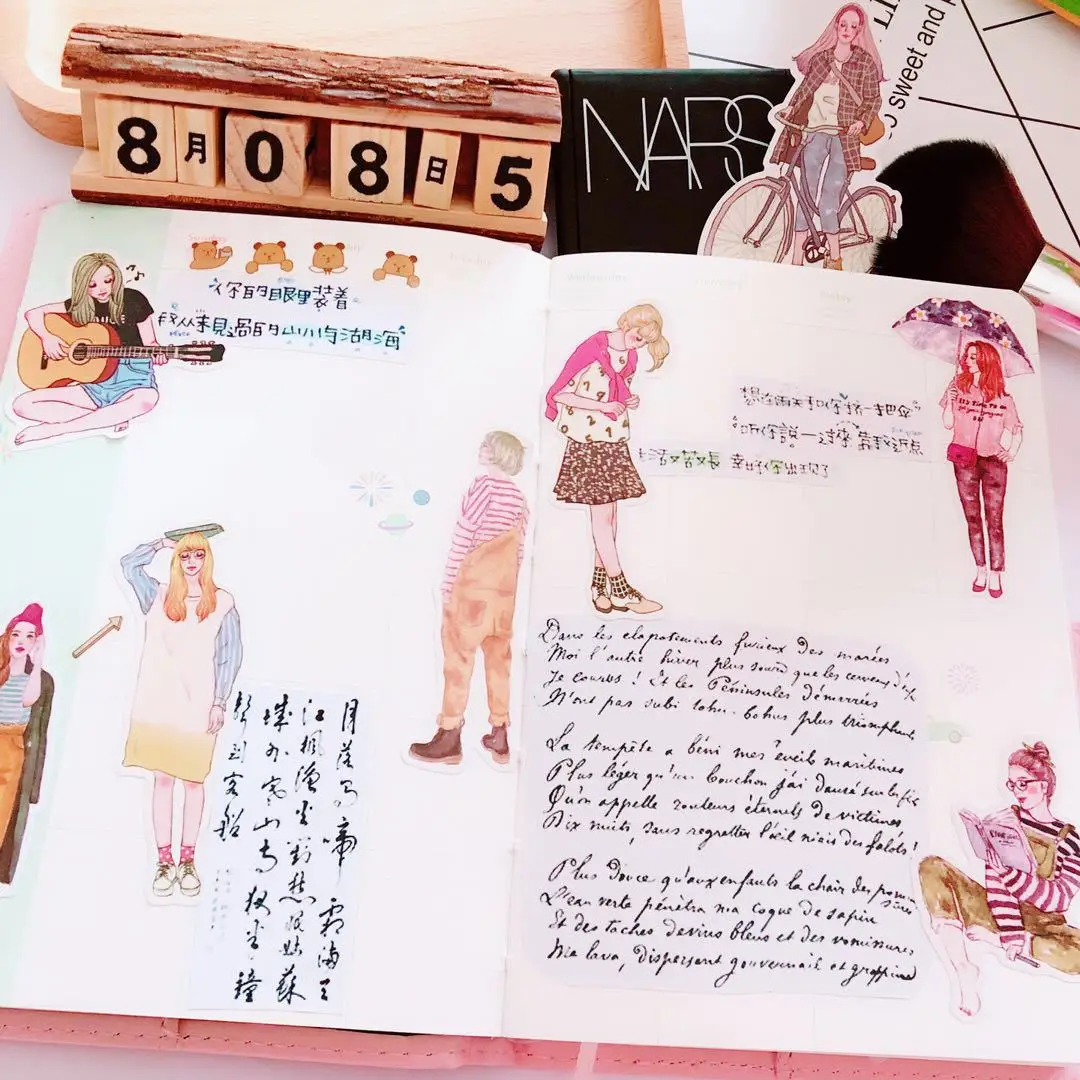 8月08日5
NARS
sweet and
Sunday
你的眼里装着
我从未見過的山川与湖海
想在雨天和你挤一把伞
听你説 靠我近点
生活又苦又長 幸好你出现了
月落烏啼 霜滿天
江楓漁火對愁眠姑蘇
城外寒山寺夜半鐘
聲到客船
Dans les clapotements furieux des marées
Moi l'autre hiver plus sourd que les cerveaux d'enf
Je courus ! Et les Péninsules démarrées
N'ont pas subi tohu-bohus plus triomphants
La tempête a béni mes éveils maritimes
Plus léger qu'un bouchon j'ai dansé sur les flots
Qu'on appelle rouleurs éternels de victimes,
Dix nuits, sans regretter l'œil niais des falots !
Plus douce qu'aux enfants la chair des pommes sûres
L'eau verte pénétra ma coque de sapin
Et des taches de vins bleus et des vomissures
Me lava, dispersant gouvernail et grappin